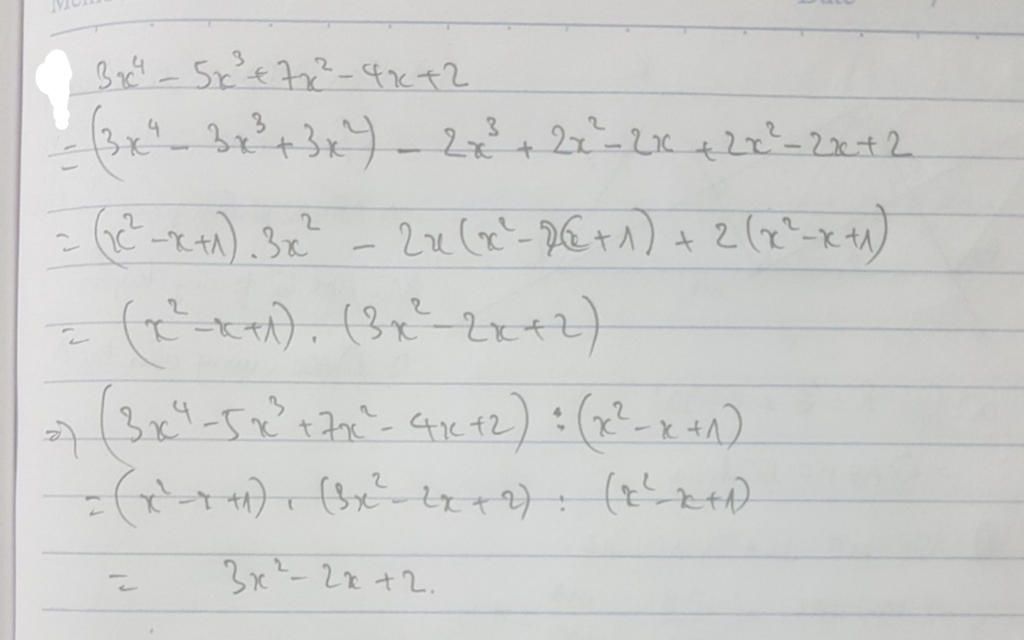 3x⁴ - 5x³ + 7x² - 4x + 2
= (3x⁴ - 3x³ + 3x²) - 2x³ + 2x² - 2x + 2x² - 2x + 2
= (x² - x + 1) . 3x² - 2x (x² - x + 1) + 2 (x² - x + 1)
= (x² - x + 1) . (3x² - 2x + 2)
=> (3x⁴ - 5x³ + 7x² - 4x + 2) : (x² - x + 1)
= (x² - x + 1) . (3x² - 2x + 2) : (x² - x + 1)
= 3x² - 2x + 2.